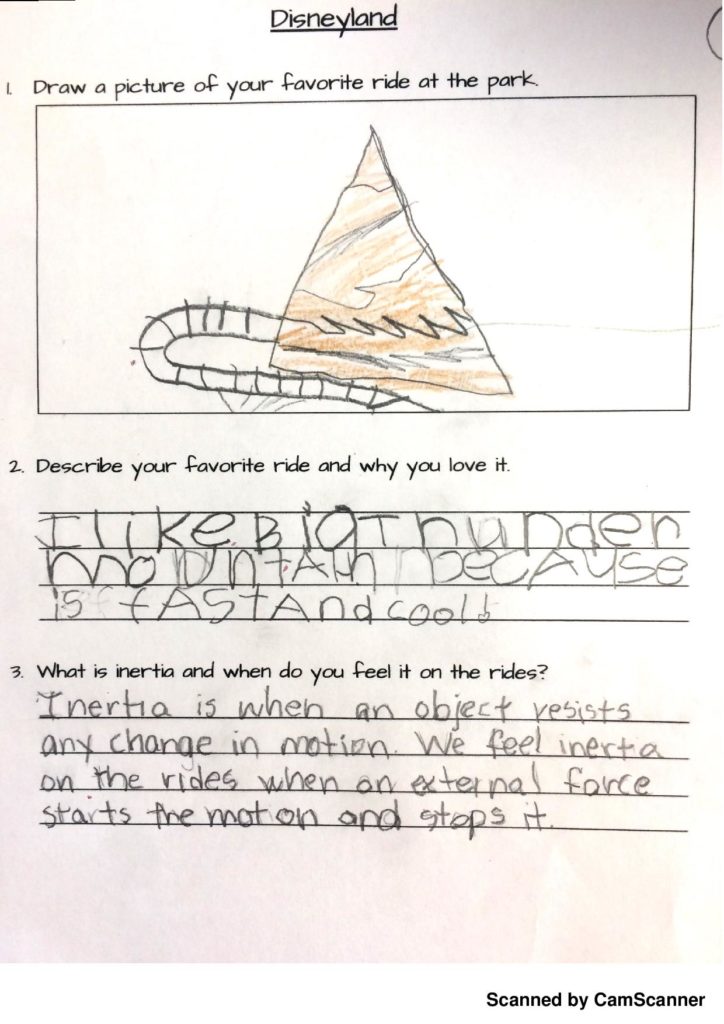 Disneyland
1. Draw a picture of your favorite ride at the park.
2. Describe your favorite ride and why you love it.
I like Big Thunder
mountain because
is fAStAnd cool!
3. What is inertia and when do you feel it on the rides?
Inertia is when an object resists
any change in motion. We feel inertia
on the rides when an external force
starts the motion and stops it.
Scanned by CamScanner